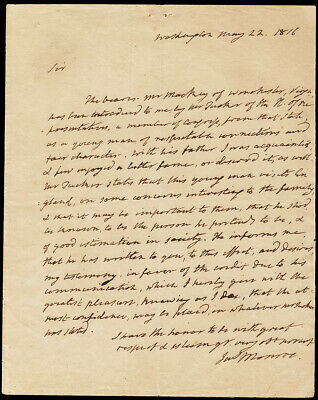 Washington May 22. 1816
Sir
The bearer Mr Mackey of Winchester, Virga
has been introduced to me by Mr Tucker of the H. of Re
presentatives, a member of Congress, from that State,
as a young man of respectable connections and
fair character. With his father I was acquainted,
& few enjoyed a better fame, or deserv'd it, as well.
Mr Tucker states that this young man visits En
gland, on some concerns interesting to the family
& that it may be important to them, that he shod
be known, to be the person he pretends to be, &
of good estimation in society. He informs me,
that he has written to you, to this effect, and desires
my testimony in favor of the credit due to his
communication, which I hereby give with the
greatest pleasure, knowing as I do, that the
confidence, may be placed, in whatever
was stated.
I have the honor to be with great
respect & esteem yr very obt
Jas Monroe